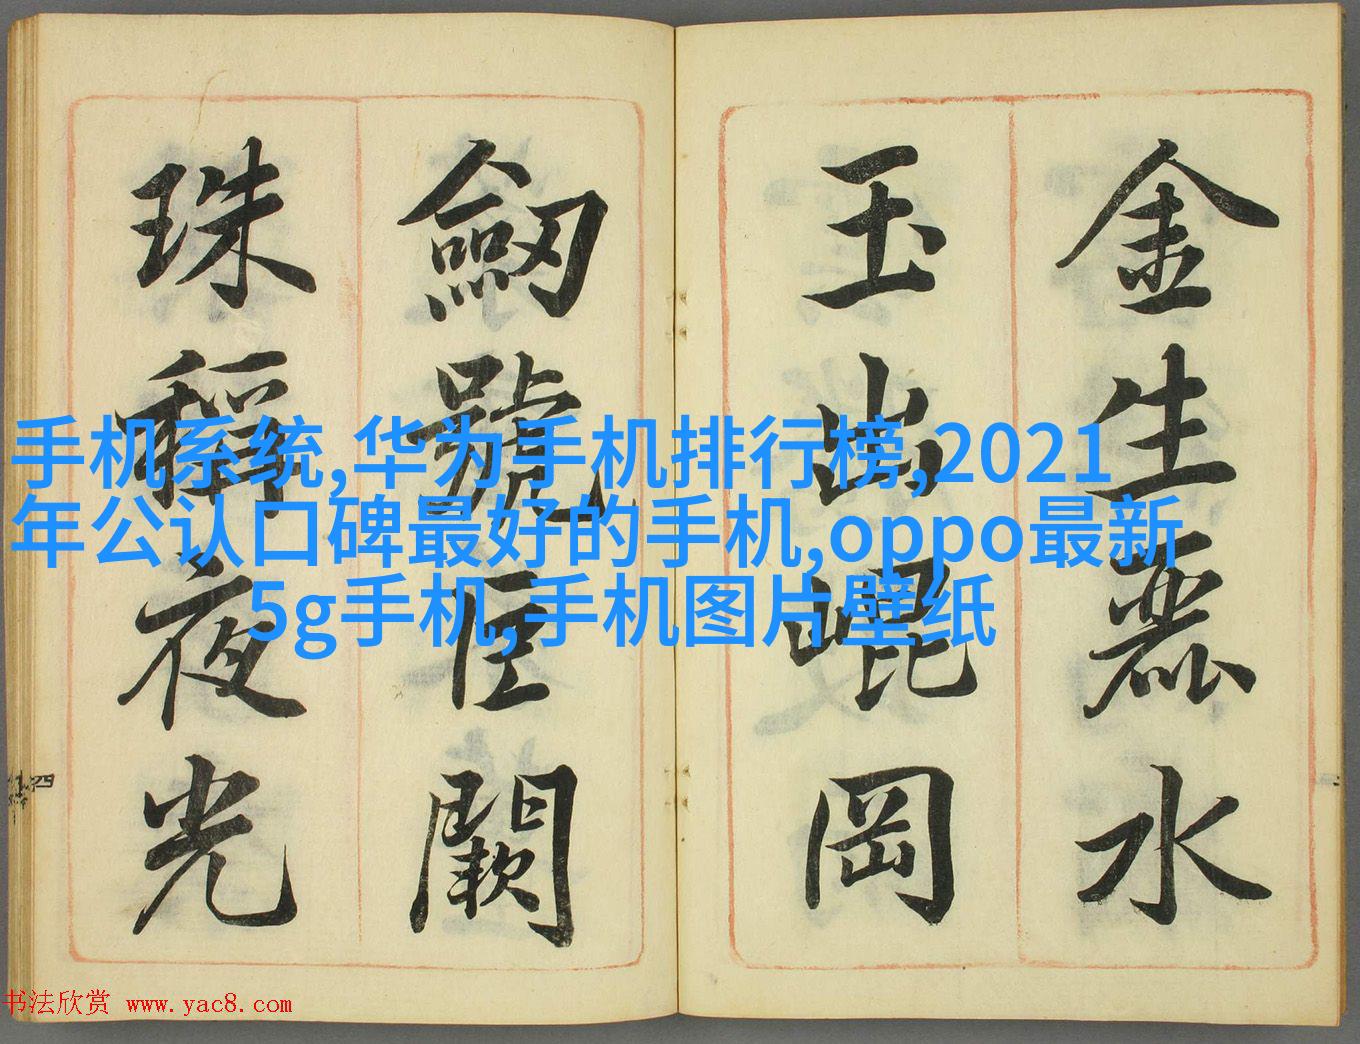 金生麗水
玉出崐岡
劔號巨闕
珠稱夜光
手机系统,华为手机排行榜,2021
年公认口碑最好的手机,oppo最新
5g手机,手机图片壁纸
四
书法欣赏 www.yac8.com